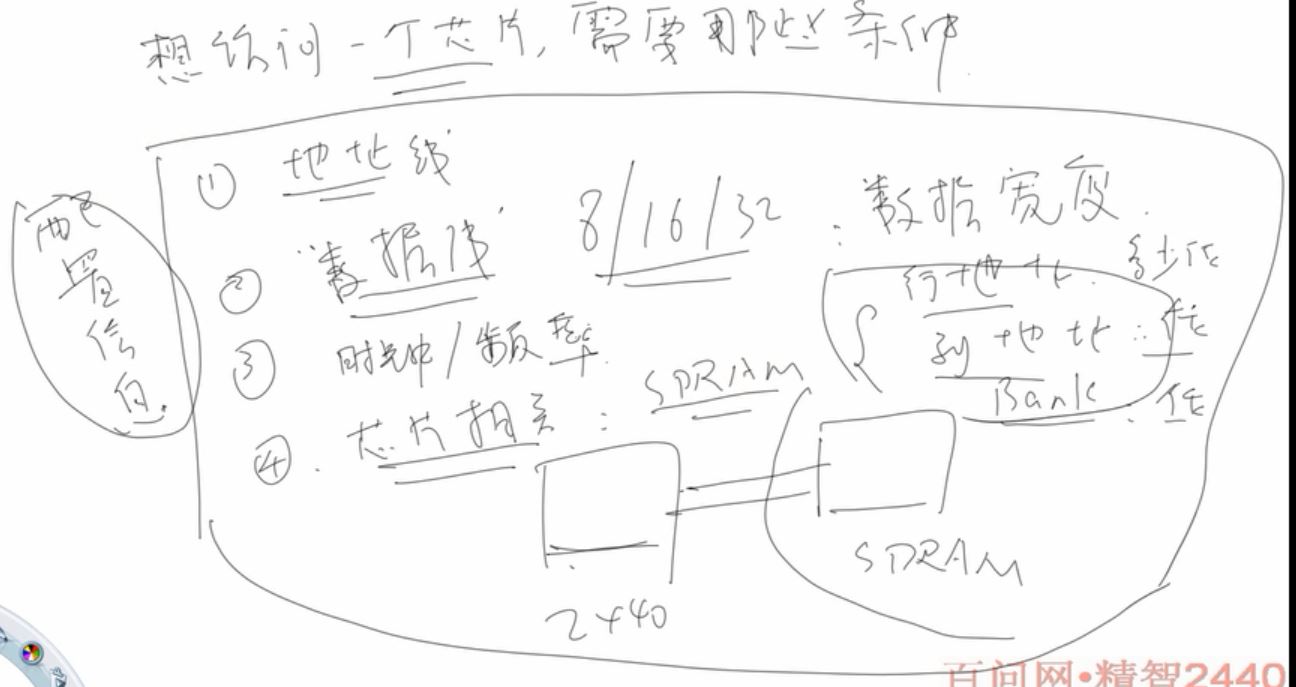 想访问一个芯片,需要那些条件
① 地址线
② 数据线 8/16/32 : 数据宽度
③ 时钟/频率
④. 芯片相关: SDRAM
行地址: 多少位
列地址: 位
Bank: 位
配置信息
2440
SDRAM
百问网•精智2440